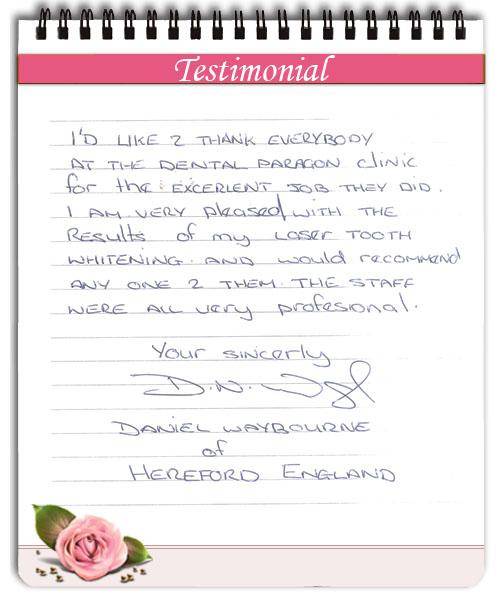 Testimonial
I'D LIKE 2 THANK EVERYBODY
AT THE DENTAL PARAGON clinic
for the EXCERLENT JOB THEY DID.
I AM VERY pleased WITH THE
Results of my LASER TOOTH
WHITENING. AND would recommend
ANY ONE 2 THEM. THE STAFF
WERE ALL very profesional.
Your SINCERLY
D.N.
DANIEL WAYBOURNE
of
HEREFORD ENGLAND